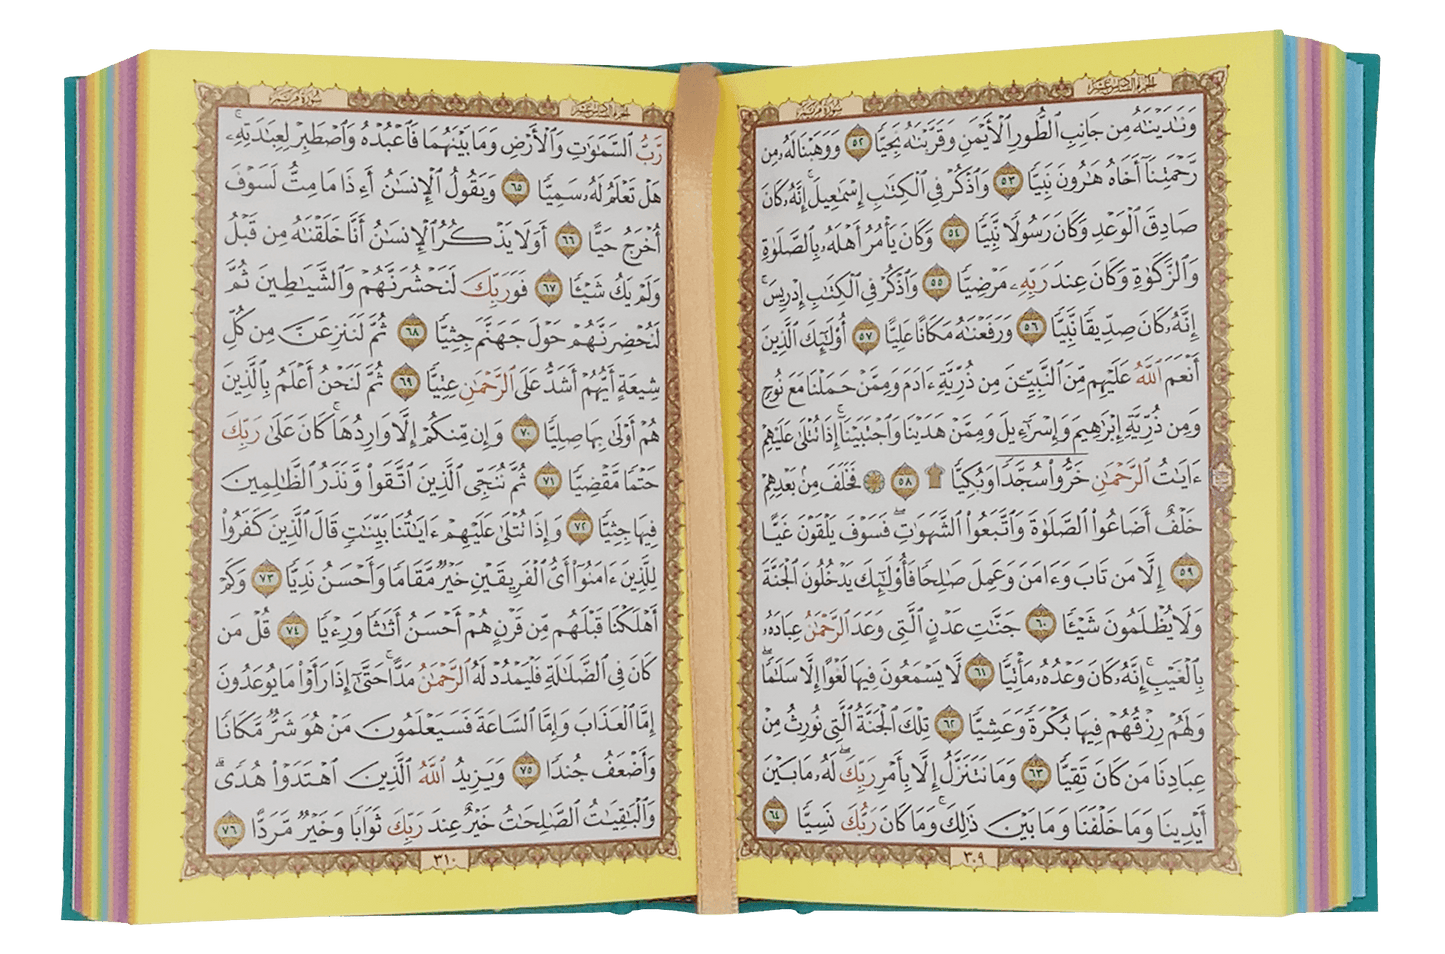 الجزء السادس عشر
سورة مريم
وَنَٰدَيۡنَٰهُ مِن جَانِبِ ٱلطُّورِ ٱلۡأَيۡمَنِ وَقَرَّبۡنَٰهُ نَجِيّٗا ٥٢ وَوَهَبۡنَا لَهُۥ مِن
رَّحۡمَتِنَآ أَخَاهُ هَٰرُونَ نَبِيّٗا ٥٣ وَٱذۡكُرۡ فِي ٱلۡكِتَٰبِ إِسۡمَٰعِيلَۚ إِنَّهُۥ كَانَ
صَادِقَ ٱلۡوَعۡدِ وَكَانَ رَسُولٗا نَّبِيّٗا ٥٤ وَكَانَ يَأۡمُرُ أَهۡلَهُۥ بِٱلصَّلَوٰةِ
وَٱلزَّكَوٰةِ وَكَانَ عِندَ رَبِّهِۦ مَرۡضِيّٗا ٥٥ وَٱذۡكُرۡ فِي ٱلۡكِتَٰبِ إِدۡرِيسَۚ
إِنَّهُۥ كَانَ صِدِّيقٗا نَّبِيّٗا ٥٦ وَرَفَعۡنَٰهُ مَكَانًا عَلِيًّا ٥٧ أُوْلَٰٓئِكَ ٱلَّذِينَ
أَنۡعَمَ ٱللَّهُ عَلَيۡهِم مِّنَ ٱلنَّبِيِّـۧنَ مِن ذُرِّيَّةِ ءَادَمَ وَمِمَّنۡ حَمَلۡنَا مَعَ نُوحٖ
وَمِن ذُرِّيَّةِ إِبۡرَٰهِيمَ وَإِسۡرَٰٓءِيلَ وَمِمَّنۡ هَدَيۡنَا وَٱجۡتَبَيۡنَآۚ إِذَا تُتۡلَىٰ عَلَيۡهِمۡ
ءَايَٰتُ ٱلرَّحۡمَٰنِ خَرُّواْ سُجَّدٗا وَبُكِيّٗا ۩ ٥٨ ۞ فَخَلَفَ مِنۢ بَعۡدِهِمۡ
خَلۡفٌ أَضَاعُواْ ٱلصَّلَوٰةَ وَٱتَّبَعُواْ ٱلشَّهَوَٰتِۖ فَسَوۡفَ يَلۡقَوۡنَ غَيًّا
٥٩ إِلَّا مَن تَابَ وَءَامَنَ وَعَمِلَ صَٰلِحٗا فَأُوْلَٰٓئِكَ يَدۡخُلُونَ ٱلۡجَنَّةَ
وَلَا يُظۡلَمُونَ شَيۡـٔٗا ٦٠ جَنَّٰتِ عَدۡنٍ ٱلَّتِي وَعَدَ ٱلرَّحۡمَٰنُ عِبَادَهُۥ
بِٱلۡغَيۡبِۚ إِنَّهُۥ كَانَ وَعۡدُهُۥ مَأۡتِيّٗا ٦١ لَّا يَسۡمَعُونَ فِيهَا لَغۡوًا إِلَّا سَلَٰمٗاۖ
وَلَهُمۡ رِزۡقُهُمۡ فِيهَا بُكۡرَةٗ وَعَشِيّٗا ٦٢ تِلۡكَ ٱلۡجَنَّةُ ٱلَّتِي نُورِثُ مِنۡ
عِبَادِنَا مَن كَانَ تَقِيّٗا ٦٣ وَمَا نَتَنَزَّلُ إِلَّا بِأَمۡرِ رَبِّكَۖ لَهُۥ مَا بَيۡنَ
أَيۡدِينَا وَمَا خَلۡفَنَا وَمَا بَيۡنَ ذَٰلِكَۚ وَمَا كَانَ رَبُّكَ نَسِيّٗا ٦٤
٣٠٩
الجزء السادس عشر
سورة مريم
رَّبُّ ٱلسَّمَٰوَٰتِ وَٱلۡأَرۡضِ وَمَا بَيۡنَهُمَا فَٱعۡبُدۡهُ وَٱصۡطَبِرۡ لِعِبَٰدَتِهِۦۚ
هَلۡ تَعۡلَمُ لَهُۥ سَمِيّٗا ٦٥ وَيَقُولُ ٱلۡإِنسَٰنُ أَءِذَا مَا مِتُّ لَسَوۡفَ
أُخۡرَجُ حَيًّا ٦٦ أَوَلَا يَذۡكُرُ ٱلۡإِنسَٰنُ أَنَّا خَلَقۡنَٰهُ مِن قَبۡلُ
وَلَمۡ يَكُ شَيۡـٔٗا ٦٧ فَوَرَبِّكَ لَنَحۡشُرَنَّهُمۡ وَٱلشَّيَٰطِينَ ثُمَّ
لَنُحۡضِرَنَّهُمۡ حَوۡلَ جَهَنَّمَ جِثِيّٗا ٦٨ ثُمَّ لَنَنزِعَنَّ مِن كُلِّ
شِيعَةٍ أَيُّهُمۡ أَشَدُّ عَلَى ٱلرَّحۡمَٰنِ عِتِيّٗا ٦٩ ثُمَّ لَنَحۡنُ أَعۡلَمُ بِٱلَّذِينَ
هُمۡ أَوۡلَىٰ بِهَا صِلِيّٗا ٧٠ وَإِن مِّنكُمۡ إِلَّا وَارِدُهَاۚ كَانَ عَلَىٰ رَبِّكَ
حَتۡمٗا مَّقۡضِيّٗا ٧١ ثُمَّ نُنَجِّي ٱلَّذِينَ ٱتَّقَواْ وَّنَذَرُ ٱلظَّٰلِمِينَ
فِيهَا جِثِيّٗا ٧٢ وَإِذَا تُتۡلَىٰ عَلَيۡهِمۡ ءَايَٰتُنَا بَيِّنَٰتٖ قَالَ ٱلَّذِينَ كَفَرُواْ
لِلَّذِينَ ءَامَنُوٓاْ أَيُّ ٱلۡفَرِيقَيۡنِ خَيۡرٞ مَّقَامٗا وَأَحۡسَنُ نَدِيّٗا ٧٣ وَكَمۡ
أَهۡلَكۡنَا قَبۡلَهُم مِّن قَرۡنٍ هُمۡ أَحۡسَنُ أَثَٰثٗا وَرِءۡيٗا ٧٤ قُلۡ مَن
كَانَ فِي ٱلضَّلَٰلَةِ فَلۡيَمۡدُدۡ لَهُ ٱلرَّحۡمَٰنُ مَدًّاۚ حَتَّىٰٓ إِذَا رَأَوۡاْ مَا يُوعَدُونَ
إِمَّا ٱلۡعَذَابَ وَإِمَّا ٱلسَّاعَةَ فَسَيَعۡلَمُونَ مَنۡ هُوَ شَرّٞ مَّكَانٗا
وَأَضۡعَفُ جُندٗا ٧٥ وَيَزِيدُ ٱللَّهُ ٱلَّذِينَ ٱهۡتَدَوۡاْ هُدٗىۗ
وَٱلۡبَٰقِيَٰتُ ٱلصَّٰلِحَٰتُ خَيۡرٌ عِندَ رَبِّكَ ثَوَابٗا وَخَيۡرٞ مَّرَدًّا ٧٦
٣١٠